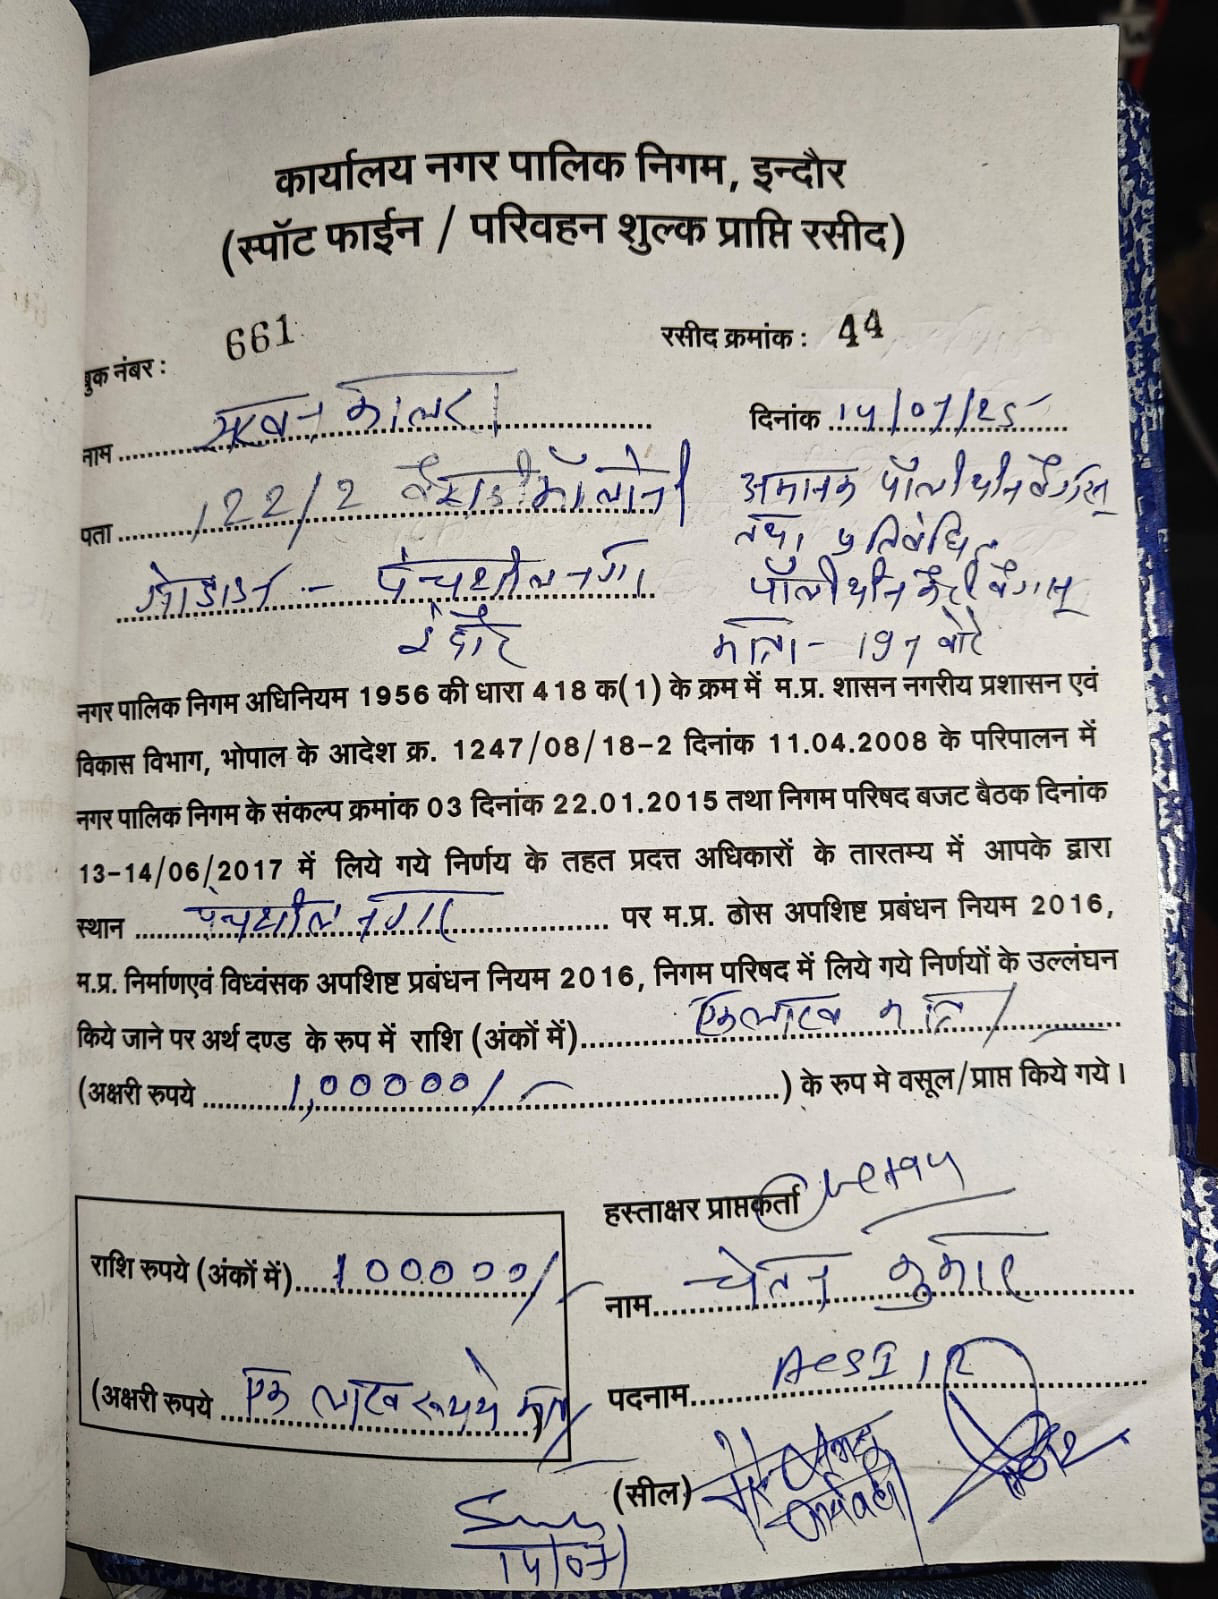 कार्यालय नगर पालिक निगम, इन्दौर
(स्पॉट फाईन / परिवहन शुल्क प्राप्ति रसीद)
बुक नंबर : 661 रसीद क्रमांक : 44
नाम दिनांक 14/07/25
पता 122/2 कॉलोनी अमानक पॉलीथीन बैगस्
तथा प्रतिबंधित
गोडाउन - पंचशील नगर पॉलीथीन कैरी बैगस्
इंदौर मात्रा - 197 बोरे
नगर पालिक निगम अधिनियम 1956 की धारा 418 क(1) के क्रम में म.प्र. शासन नगरीय प्रशासन एवं
विकास विभाग, भोपाल के आदेश क्र. 1247/08/18-2 दिनांक 11.04.2008 के परिपालन में
नगर पालिक निगम के संकल्प क्रमांक 03 दिनांक 22.01.2015 तथा निगम परिषद बजट बैठक दिनांक
13-14/06/2017 में लिये गये निर्णय के तहत प्रदत्त अधिकारों के तारतम्य में आपके द्वारा
स्थान पंचशील नगर पर म.प्र. ठोस अपशिष्ट प्रबंधन नियम 2016,
म.प्र. निर्माणएवं विध्वंसक अपशिष्ट प्रबंधन नियम 2016, निगम परिषद में लिये गये निर्णयों के उल्लंघन
किये जाने पर अर्थ दण्ड के रुप में राशि (अंकों में) एक लाख मात्र/-
(अक्षरी रुपये 1,00000/-) के रुप मे वसूल/प्राप्त किये गये।
हस्ताक्षर प्राप्तकर्ता Chetan
राशि रुपये (अंकों में) 100000/-
नाम चेतन कुमार
(अक्षरी रुपये एक लाख रूपये मात्र)
पदनाम
(सील)
14/07